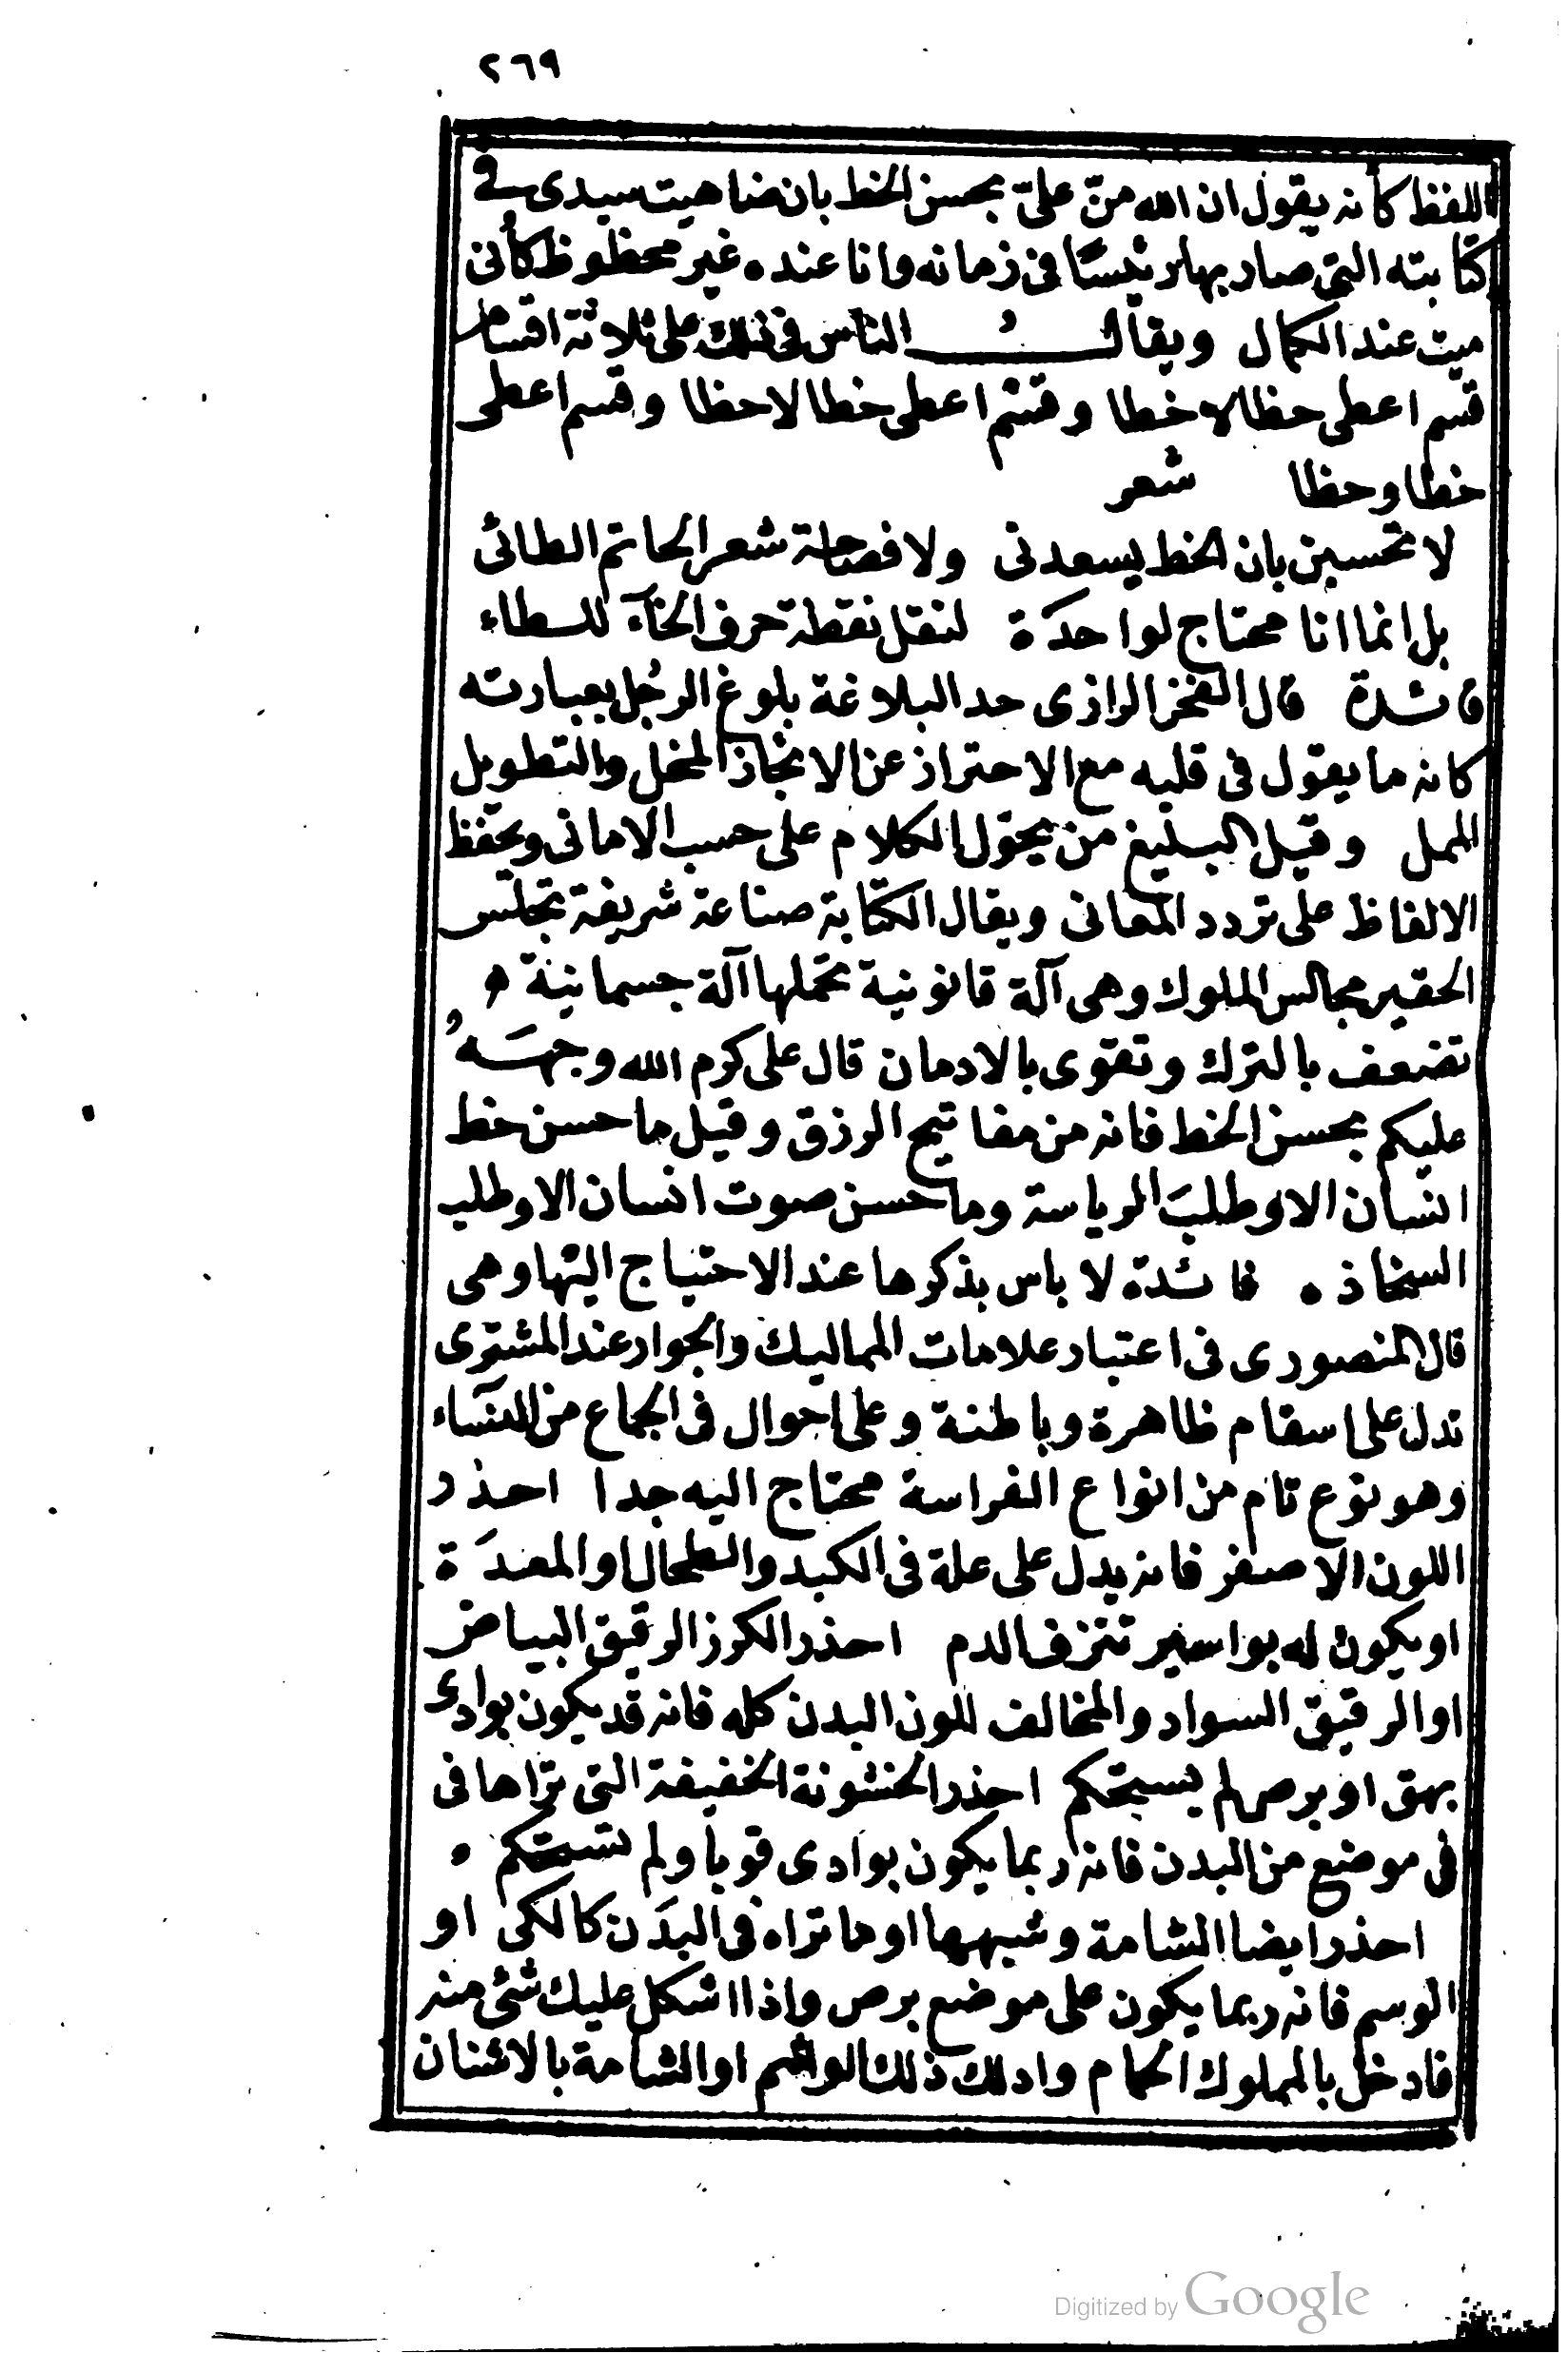 ٢٦٩
اللفظ كأنه يقول ان الله منّ علىّ بحسن الخط بان ضاهيت سيدى فى
كتابته التى صار بها رئيسًا فى زمانه وانا عنده غير محظوظ كأنى
ميت عند الكمال ويقالُ الناس فى ذلك على ثلاثة اقسام
قسم اعطى حظا لا خطا وقسم اعطى خطا لا حظا وقسم اعطى
خطا وحظا شعر
لا تحسبن بان الخط يسعدنى ولا فصاحة شعر الحاتم الطائى
بل انما انا محتاج لواحدَة لنقل نقطة حرف الخآء للطاء
فائدة قال الفخر الرازى حد البلاغة بلوغ الرجُل بعبارته
كانه ما يقول فى قلبه مع الاحتراز عن الانجاز المخل والتطويل
الممل وقيل البليغ من يحوّل الكلام على حسب الامانى ويحفظ
الالفاظ على تردد المعانى ويقال الكتابة صناعة شريفة تجلس
الحقير مجالس الملوك وهى آلة قانونية تحملها آلة جسمانية ه
تضعف بالترك وتقوى بالادمان قال على كرم الله وجهَهُ
عليكم بحسن الخط فانه من مفاتيح الرزق وقيل ما حسن خط
انسان الا وطلبَ الرياسة وما حسن صوت انسان الا وطلب
السخاذ ه فائدة لا باس بذكرها عند الاحتياج اليها وهى
قال المنصورى فى اعتبار علامات المماليك والجوار عند المشترى
تدل على اسقام ظاهرة وباطنة وعلى احوال فى الجماع من النسَاء
وهو نوع تام من انواع الفراسة محتاج اليه جدا احذر
اللون الاصفر فانه يدل على علة فى الكبد والطحال او المعدَة
او يكون له بواسير تنزف الدم احذر الكرز الرقيق البياض
او الرقيق السواد والمخالف للون البدن كله فانه قد يكون بوادى
بهق او برص لم يستحكم احذر الخشونة الخفيفة التى تراها فى
فى موضع من البدن فانه ربما يكون بوادى قوبا ولم تستحكم ه
احذر ايضا الشامة وشبهها او ما تراه فى البدَن كالكى او
الوسم فانه ربما يكون على موضع برص واذا اشكل عليك شئ منه
فادخل بالمملوك الحمام وادلك ذلك الوشم او الشامة بالاشنان
Digitized by Google